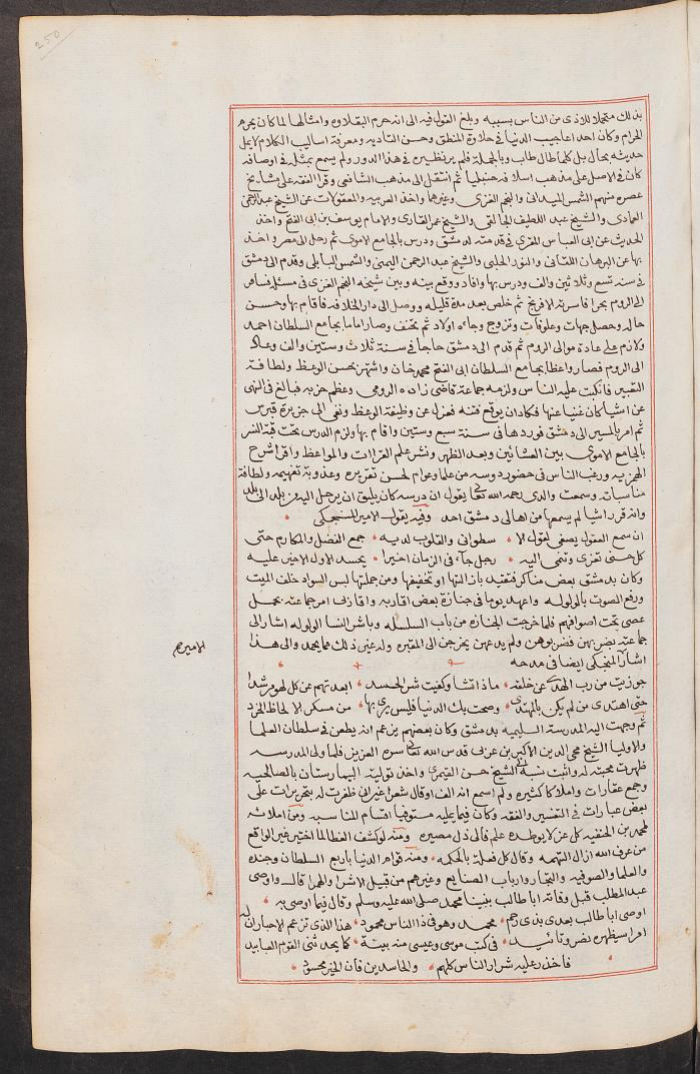 250
بذلك متحملا للاذى من الناس بسببه وبلغ القول فيه الى انه حرم البقلاوه وامثالها لما كان يحرم
الحرام وكان احد اعاجيب الدنيا فى حلاوة المنطق وحسن التاديه ومعرفة اساليب الكلام لا يمل
حديثه بحال بل كلما طال طاب وبالجملة فلم ير نظيره فى هذا الدور ولم يسمع بمثله فى اوصافه
كان فى الاصل على مذهب اسلافه حنبليا ثم انتقل الى مذهب الشافعى وقرا الفقه على مشايخ
عصره منهم الشمس الميدانى والنجم الغزى وغيرهما واخذ العربيه والمعقولات عن الشيخ عبد الرحمن
العمادى والشيخ عبد اللطيف الجالقى والشيخ عمر القارى والامام يوسف بن ابى الفتح واخذ
الحديث عن ابى العباس المقرى فى قدمته لدمشق ودرس بالجامع الاموى ثم رحل الى مصر واخذ
بها عن البرهان اللقانى والنور الحلبى والشيخ عبد الرحمن اليمنى والشمس البابلى وقدم الى دمشق
فى سنه تسع وثلاثين والف ودرس بها وافاد ووقع بينه وبين شيخه النجم الغزى فى مسئلة فسافر
الى الروم بحرا فاسرته الافرنج ثم خلص بعد مدة قليله ووصل الى دار الخلافه فاقام بها وحسن
حاله وحصل جهات وعلوفات وتزوج وجاءه اولاد ثم تحنف وصار اماما بجامع السلطان احمد
ولازم على عادة موالى الروم ثم قدم الى دمشق حاجا فى سنة ثلاث وستين والف وعاد
الى الروم فصار واعظا بجامع السلطان ابى الفتح محمد خان واشتهر بحسن الوعظ ولطافة
التعبير فانكبت عليه الناس ولزمه جماعة قاضى زاده الرومى وعظم حزبه فبالغ فى النهى
عن اشيا كان غنيا عنها فكاد ان يوقع فتنه فعزل عن وظيفة الوعظ ونفى الى جزيرة قبرس
ثم امر بالمسير الى دمشق فوردها فى سنة سبع وستين واقام بها ولزم الدرس تحت قبة النسر
بالجامع الاموى بين العشائين وبعد الظهر ونشر علم القراات والمواعظ واقرا شرح
الهمزيه ورغب الناس فى حضور دروسه من علما وعوام لحسن تقريره وعذوبة تفهيمه ولطافة
مناسباته وسمعت والدى رحمه الله تعالى يقول ان درسه كان يليق ان يرحل اليه من بلد الى بلد
وانه قرر اشيا لم يسمعها من اهالى دمشق احد وفيه يقول الامير المنجكى
ان سمع العقول يصغى لقول لا سطوانى والقلوب لديه جمع الفضل والمكارم حتى
كل حسنى تعزى وتنمى اليه رجل جاء فى الزمان اخيرا يحسد الاول الاخير عليه
وكان بدمشق بعض مناكر فتقيد بازالتها او تخفيفها ومن جملتها لبس السواد خلف الميت
ورفع الصوت بالولوله واعهد يوما فى جنازة بعض اقاربه واقاربى امر جماعته بحمل
عصى تحت اصوافهم فلما خرجت الجنازه من باب السلسله وباشر النسا الولوله اشار الى
جماعته بضربهن فضربوهن ولم يدعهن يخرجن الى المقبره وله غير ذلك مما يحمد والى هذا
الاميرم
اشار المنجكى ايضا فى مدحه
جوزيت من رب الهدى عن خلقه ماذا تشا وكفيت شر الحسد ابعدتهم عن كل لهو مرشدا
حتى اهتدى من لم يكن بالمهتدى وصحت بك الدنيا فليس يرى بها من مسكر الا لحاظ الخرد
ثم وجهت اليه المدرسة السليميه بدمشق وكان بعضهم يزعم انه يطعن فى سلطان العلما
والاوليا الشيخ محى الدين الاكبر بن عربى قدس الله تعالى سره العزيز فلما ولى المدرسه
ظهرت محبته له واثبت نسبه الى الشيخ حسن القيمرى واخذ تولية البيمارستان بالصالحيه
وجمع عقارات واملاكا كثيره ولم اسمع انه الف او قال شعرا غير انى ظفرت له بتحريرات على
بعض عبارات فى التفسير والفقه وكان فيما عليه مستوفيا اقسام المناسبه ومن املائه
لمحمد بن الحنفيه كل عز لا يوطده علم فالى ذل مصيره ومنه لو كشف الغطا لما اختير غير الواقع
من عرف الله ازال التهمه وقال كل فعله بالحكمه ومنه قوام الدنيا باربع السلطان وجنده
والعلما والصوفيه والتجار وارباب الصنايع وغيرهم من قبيل الاشرا والهمرا قال واوصى
عبد المطلب قبل وفاته ابا طالب بنبينا محمد صلى الله عليه وسلم وقال فيما اوصى به
اوصى ابا طالب بعدى بذى رحم محمد وهو فى ذا الناس محمود هذا الذى تزعم الاحبار ان له
امرا سيظهره نصر وتائيد فى كتب موسى وعيسى منه بينة كما يحدثنى القوم العبابيد
فاحذر عليه شرار الناس كلهم والحاسدين فان الخير محسود